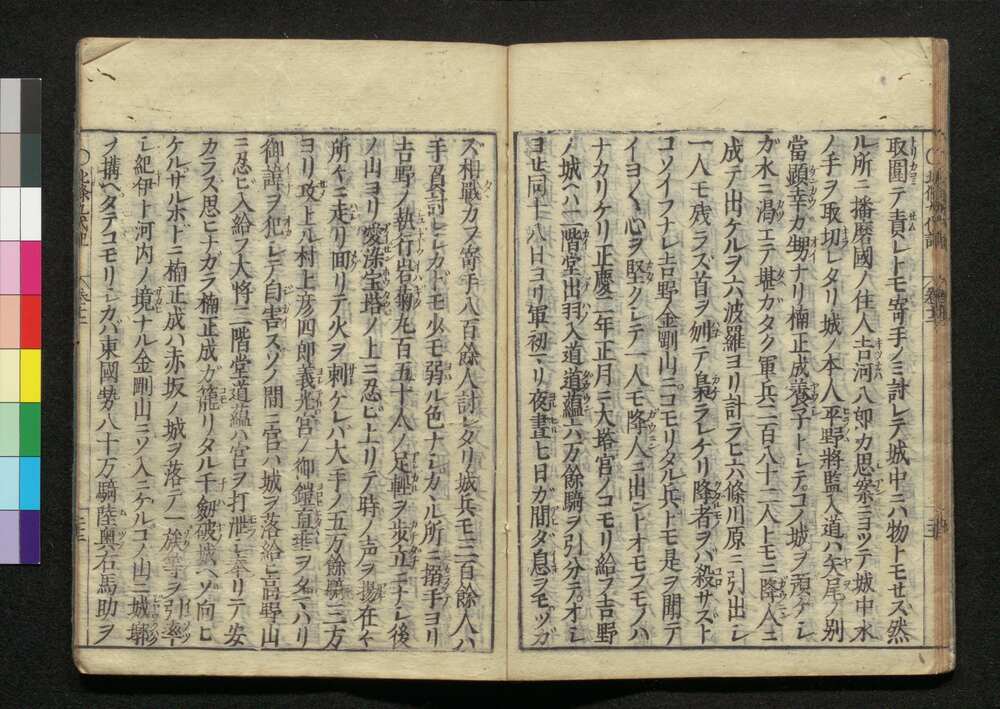 取圍テ責シトモ寄手ノミ討レテ城中ニハ物トモせズ然
ル所ニ播磨國ノ住人吉河八郎カ思案ニヨツテ城中水
ノ手ヲ取切レタリ城ノ本人平野將監入道ハ矢尾ノ別
當顕幸カ甥ナリ楠正成養子トシテコノ城ヲ預ケシ
ガ水ニ渇エテ堪ガタク軍兵二百八十二人トモニ降人ニ
成テ出ケルヲ六波羅ヨリ計ラヒ六條川原ニ引出シ
一人モ残ラズ首ヲ刎テ梟ラレケリ降者ヲバ殺サズト
コソイフナレ吉野金剛山ニコモリタル兵トモ是ヲ聞テ
イヨ〱心ヲ堅クシテ一人モ降人ニ出ントオモフモノハ
ナカリケリ正慶二年正月ニ大塔宮ノコモリ給フ吉野
ノ城ヘハ二階堂出羽入道道蘊六万餘騎ヲ引分テオシ
ヨせ同十八日ヨリ軍初リ夜晝七日ガ間タ息ヲモツガ
ズ相戰カフ寄手八百餘人討レタリ城兵モ三百餘人ハ
手負討レシカドモ少モ弱ル色ナシカヽル所ニ搦手ヨリ
吉野ノ執行岩菊丸百五十人ノ足輕ヲ歩立ニナシ後
ノ山ヨリ愛染宝塔ノ上ニ忍ビ上リテ時ノ声ヲ揚在々
所々ニ走リ回リテ火ヲ刺ケレバ大手ノ五万餘騎三方
ヨリ攻上ル村上彦四郎義光宮ノ御鎧直垂ヲタバハリ
御諱ヲ犯シテ自害スソノ間ニ宮ハ城ヲ落給ヒ高野山
ニ忍ビ入給フ大將二階堂道蘊ハ宮ヲ打泄シ奉リテ安
カラズ思ヒナガラ楠正成ガ籠リタル千釼破城ヘソ向ヒ
ケルサルホドニ楠正成ハ赤坂ノ城ヲ落テ一族等ヲ引率
シ紀伊ト河内ノ境ナル金剛山ニソ入ニケルコノ山ニ城墎
ノ搆ヘタテコモリシカバ東國勢八十万騎陸奥右馬助ヲ